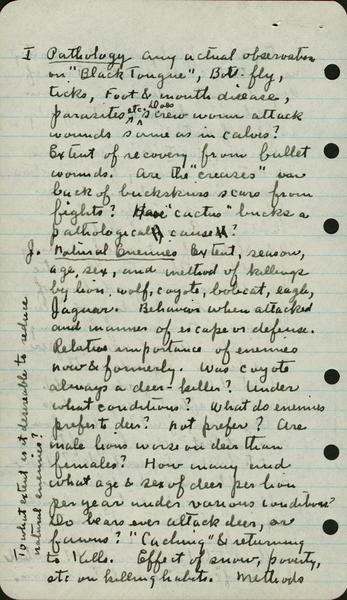 I Pathology any actual observation
on "Black Tongue", Bot-fly,
ticks, Foot & mouth disease,
parasites, etc. Does screw worm attack
wounds same as in calves?
Extent of recovery from bullet
wounds. Are the "creases" on
back of buckskins scars from
fights? Have "cactus" bucks a
pathological cause?
J. Natural Enemies Extent, season,
age, sex, and method of killings
by lion, wolf, coyote, bobcat, eagle,
Jaguar. Behavior when attacked
and manner of escape or defense.
Relative importance of enemies
now & formerly. Was coyote
always a deer-killer? Under
what conditions? What do enemies
prefer to deer? Not prefer? Are
male lions worse on deer than
females? How many and
what age & sex of deer per lion
per year under various conditions?
Do bears ever attack deer, or
fawns? "Caching" & returning
to kills. Effect of snow, poverty,
etc on killing habits. Methods
To what extent is it desireable to reduce
natural enemies?